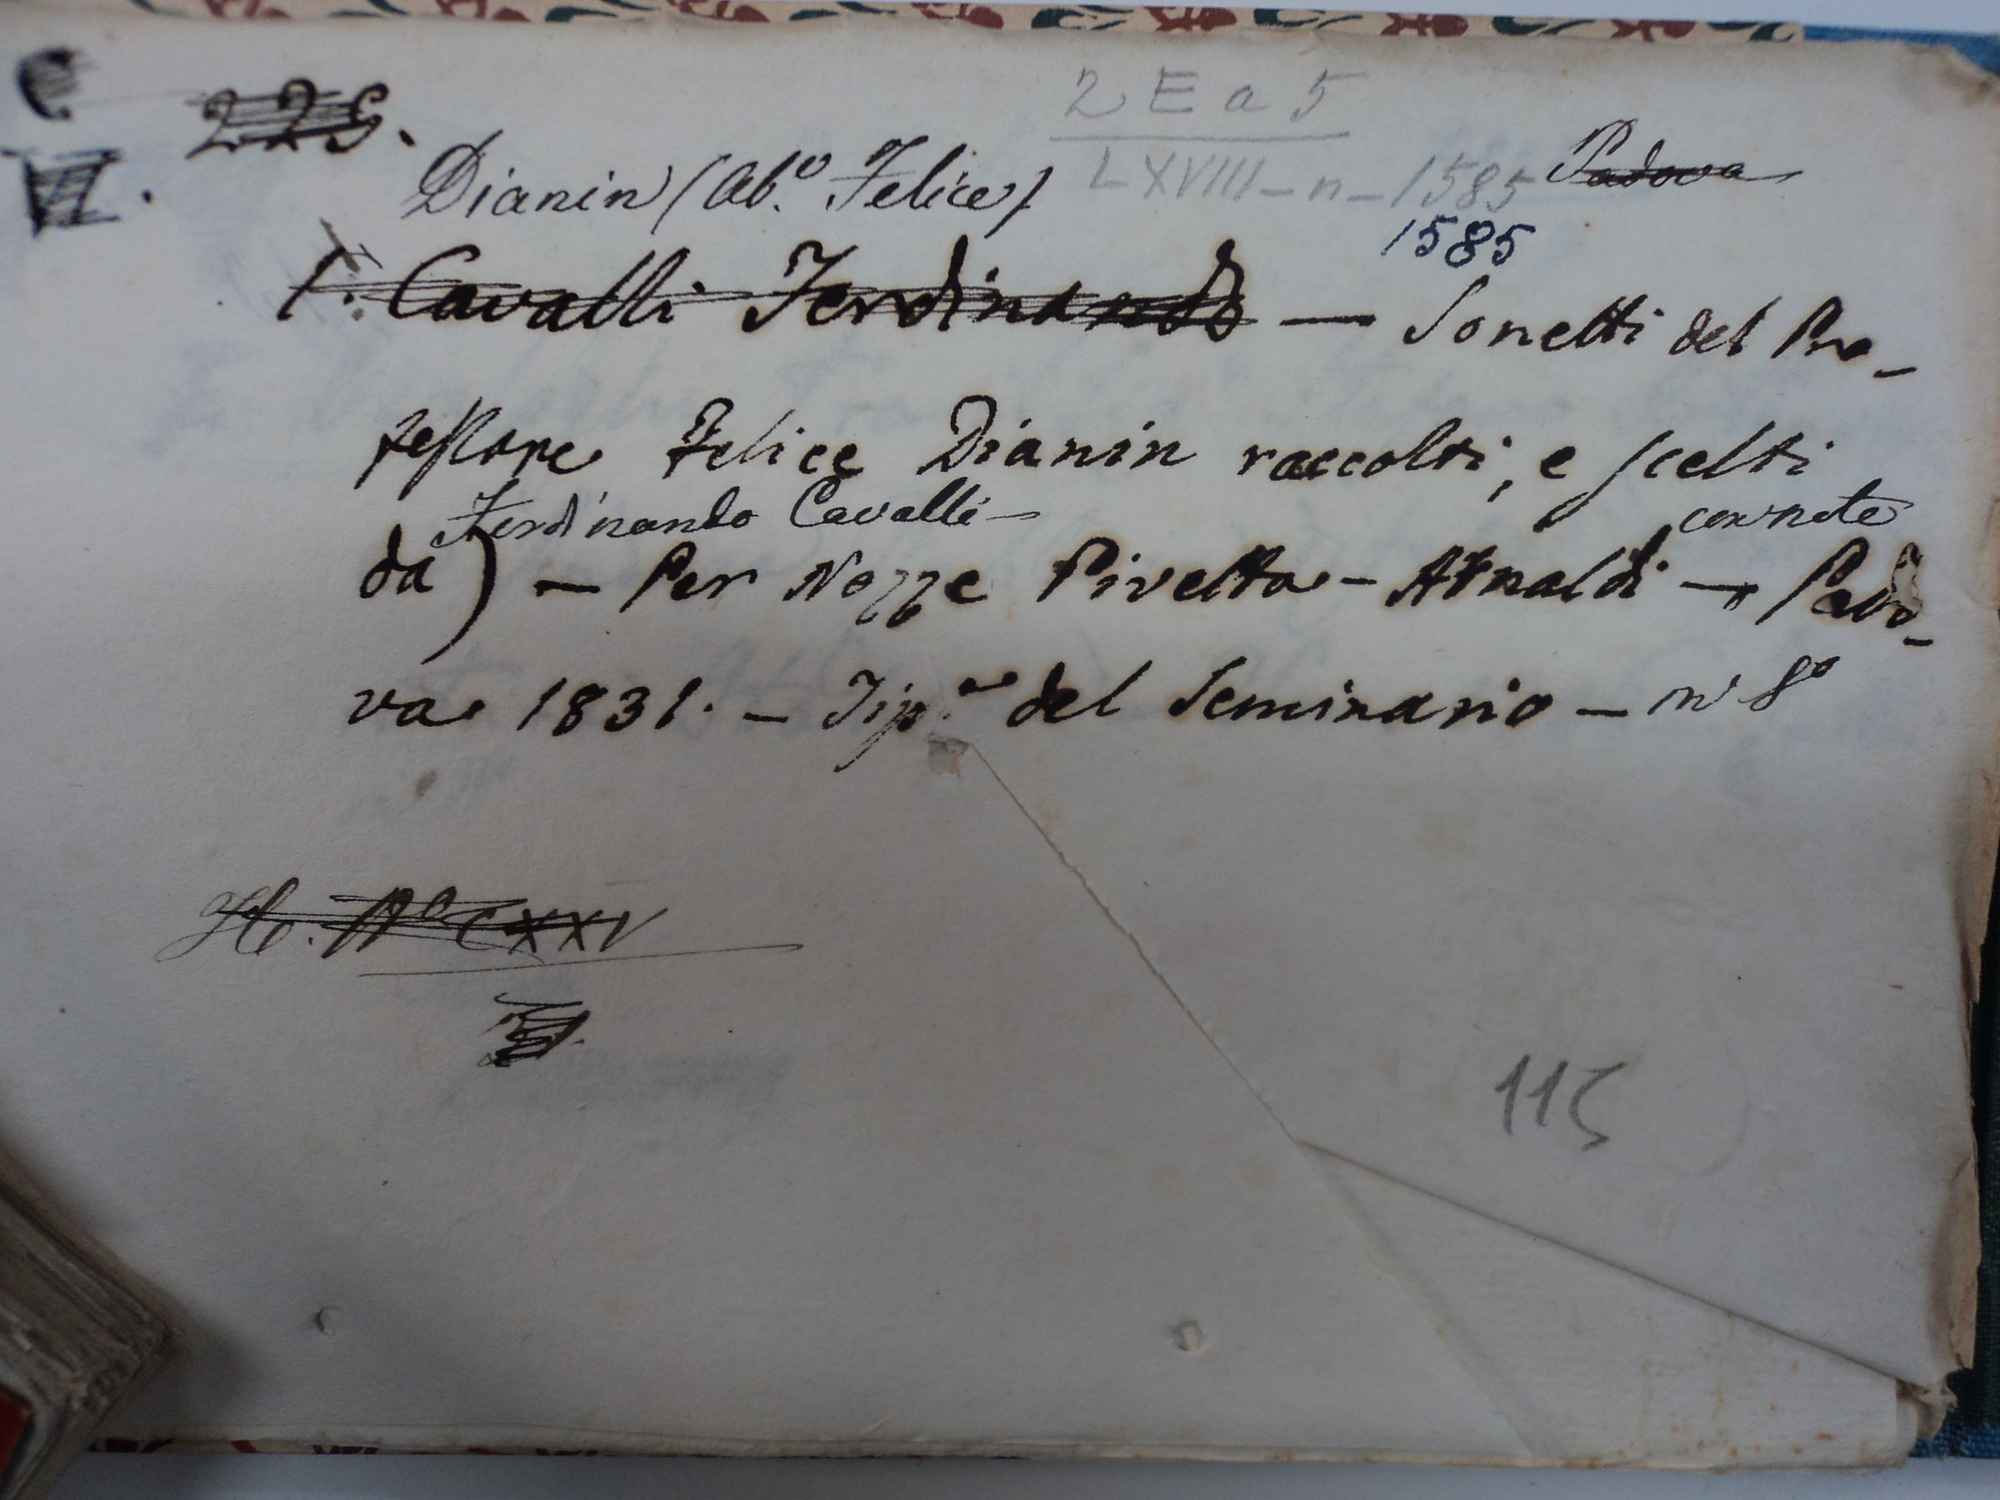 225.
VI.
2 E a 5
LXVIII - n - 1585
Padova
Dianin (Ab.º Felice)
1585
Cavalli Ferdinando — Sonetti del Pro-
fessore Felice Dianin raccolti, e scelti
Ferdinando Cavalli — con note
da) — Per Nozze Pivetta - Arnaldi — Pado-
va 1831. — Tip.ª del Seminario — in 8º
Nº CXXV
115